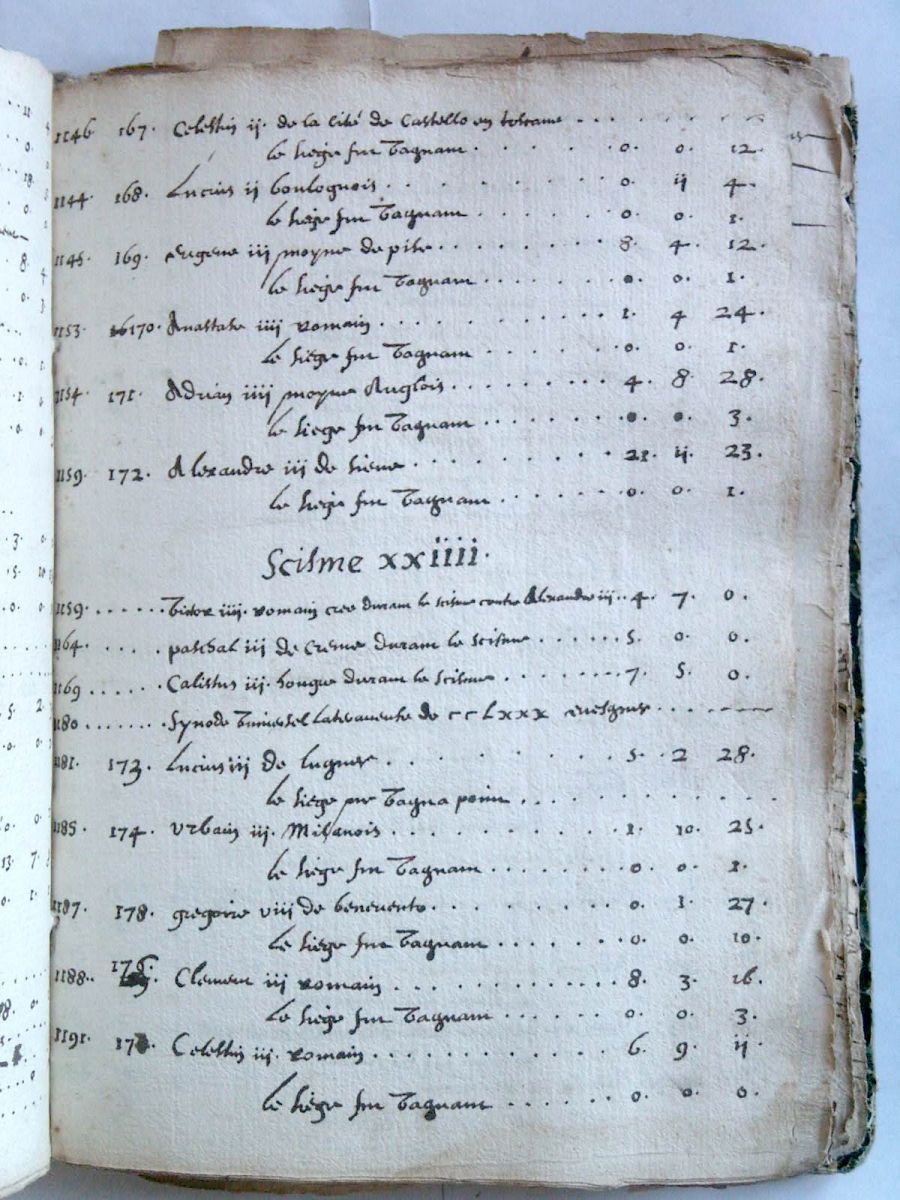 1146 167. Celestin ij. de la cité de Castello en toscane . . . . . .
le siege fut Vaquant . . . . . . 0. 0. 12.
1144. 168. Lucius ij boulognois . . . . . . 0. ij 4.
le siege fut Vaquant . . . . . . 0. 0. 1.
1145. 169. Eugene iij moyne de pise . . . . . . 8. 4. 12.
le siege fut Vaquant . . . . . . 0. 0. 1.
1153. 170. Anastase iiij romain . . . . . . 1. 4 24.
le siege fut Vaquant . . . . . . 0. 0. 1.
1154. 171. Adrian iiij moyne Anglois . . . . . . 4. 8. 28.
le siege fut Vaquant . . . . . . 0. 0. 3.
1159. 172. Alexandre iij de siene . . . . . . 21. ij. 23.
le siege fut Vaquant . . . . . . 0. 0. 1.
Scisme xxiiii.
1159. . . . . . Victor iiij. romain cree durant le scisme contre Alexandre iij . . 4. 7. 0.
1164. . . . . paschal iij de Creme durant le scisme . . . . . . 5. 0. 0.
1169 . . . . . . Calistus iij. hongre durant le scisme . . . . . . 7. 5. 0.
1180 . . . . . . . Synode Vniversel Lateranense de ccLxxx evesques . . . . . .
1181. 173. Lucius iij de luques . . . . . . 5. 2 28.
le siege ne Vaqua point . . . . . .
1185. 174. Urbain iij. Milanois . . . . . . 1. 10. 25.
le siege fut Vaquant . . . . . . 0. 0. 1.
1187. 178. gregoire viij de benevento . . . . . . 0. 1. 27.
le siege fut Vaquant . . . . . . 0. 0. 10.
1188. . 176. Clement iij romain . . . . . . 8. 3. 16.
le siege fut Vaquant . . . . . . 0. 0. 3.
1191. Celestin iij. romain . . . . . . 6. 9. ij.
le siege fut Vaquant . . . . . . 0. 0. 0.